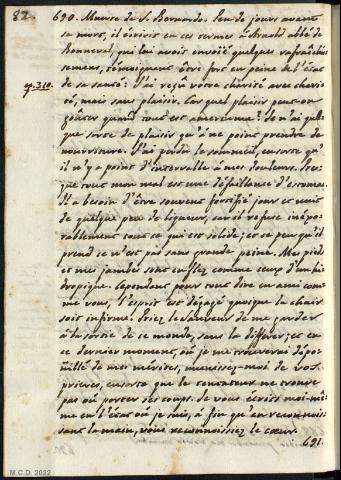 82. 690. Muerte de S. Bernardo. Peu de jours avant
sa mort, il écrivit en ces termes à Arnold abbé de
Bonneval, qui lui avoit envoié quelques rafraichis-
sement, témoignant être fort en peine de l'état
ep. 310. de sa santé: J'ai reçu votre charité avec chari-
té, mais sans plaisir. Car quel plaisir peut-on
goûter quand tout est amertume? Je n'ai quel-
que sorte de plaisir qu'à ne point prendre de
nourriture. J'ai perdu le sommeil, ensorte qu'
il n'y a point d'intervalle à mes douleurs. Pres-
que tout mon mal est une défaillance d'estomac.
Il a besoin d'être souvent fortifié jour et nuit
de quelque peu de liqueur, car il refuse inéxo-
rablement tout ce qui est solide; et ce peu qu'il
prend ce n'est pas sans grande peine. Mes pieds
et mes jambes sont enflez comme ceux d'un hi-
dropique. Cependant pour tout dire en ami com-
me vous, l'esprit est dégagé quoique la chair
soit infirme. Priez le Sauveur de me garder
à la sortie de ce monde, sans la différer; et en
ce dernier moment, où je me trouverai dépo-
üillé de mes mérites, munissez-moi de vos
prières, ensorte que le tentateur ne trouve
pas où porter ses coups. Je vous écris moi-mê-
me en l'état où je suis, à fin qu'en reconnois-
sant la main, vous reconnoissiez le cœur.
691.
M.C.D. 2022